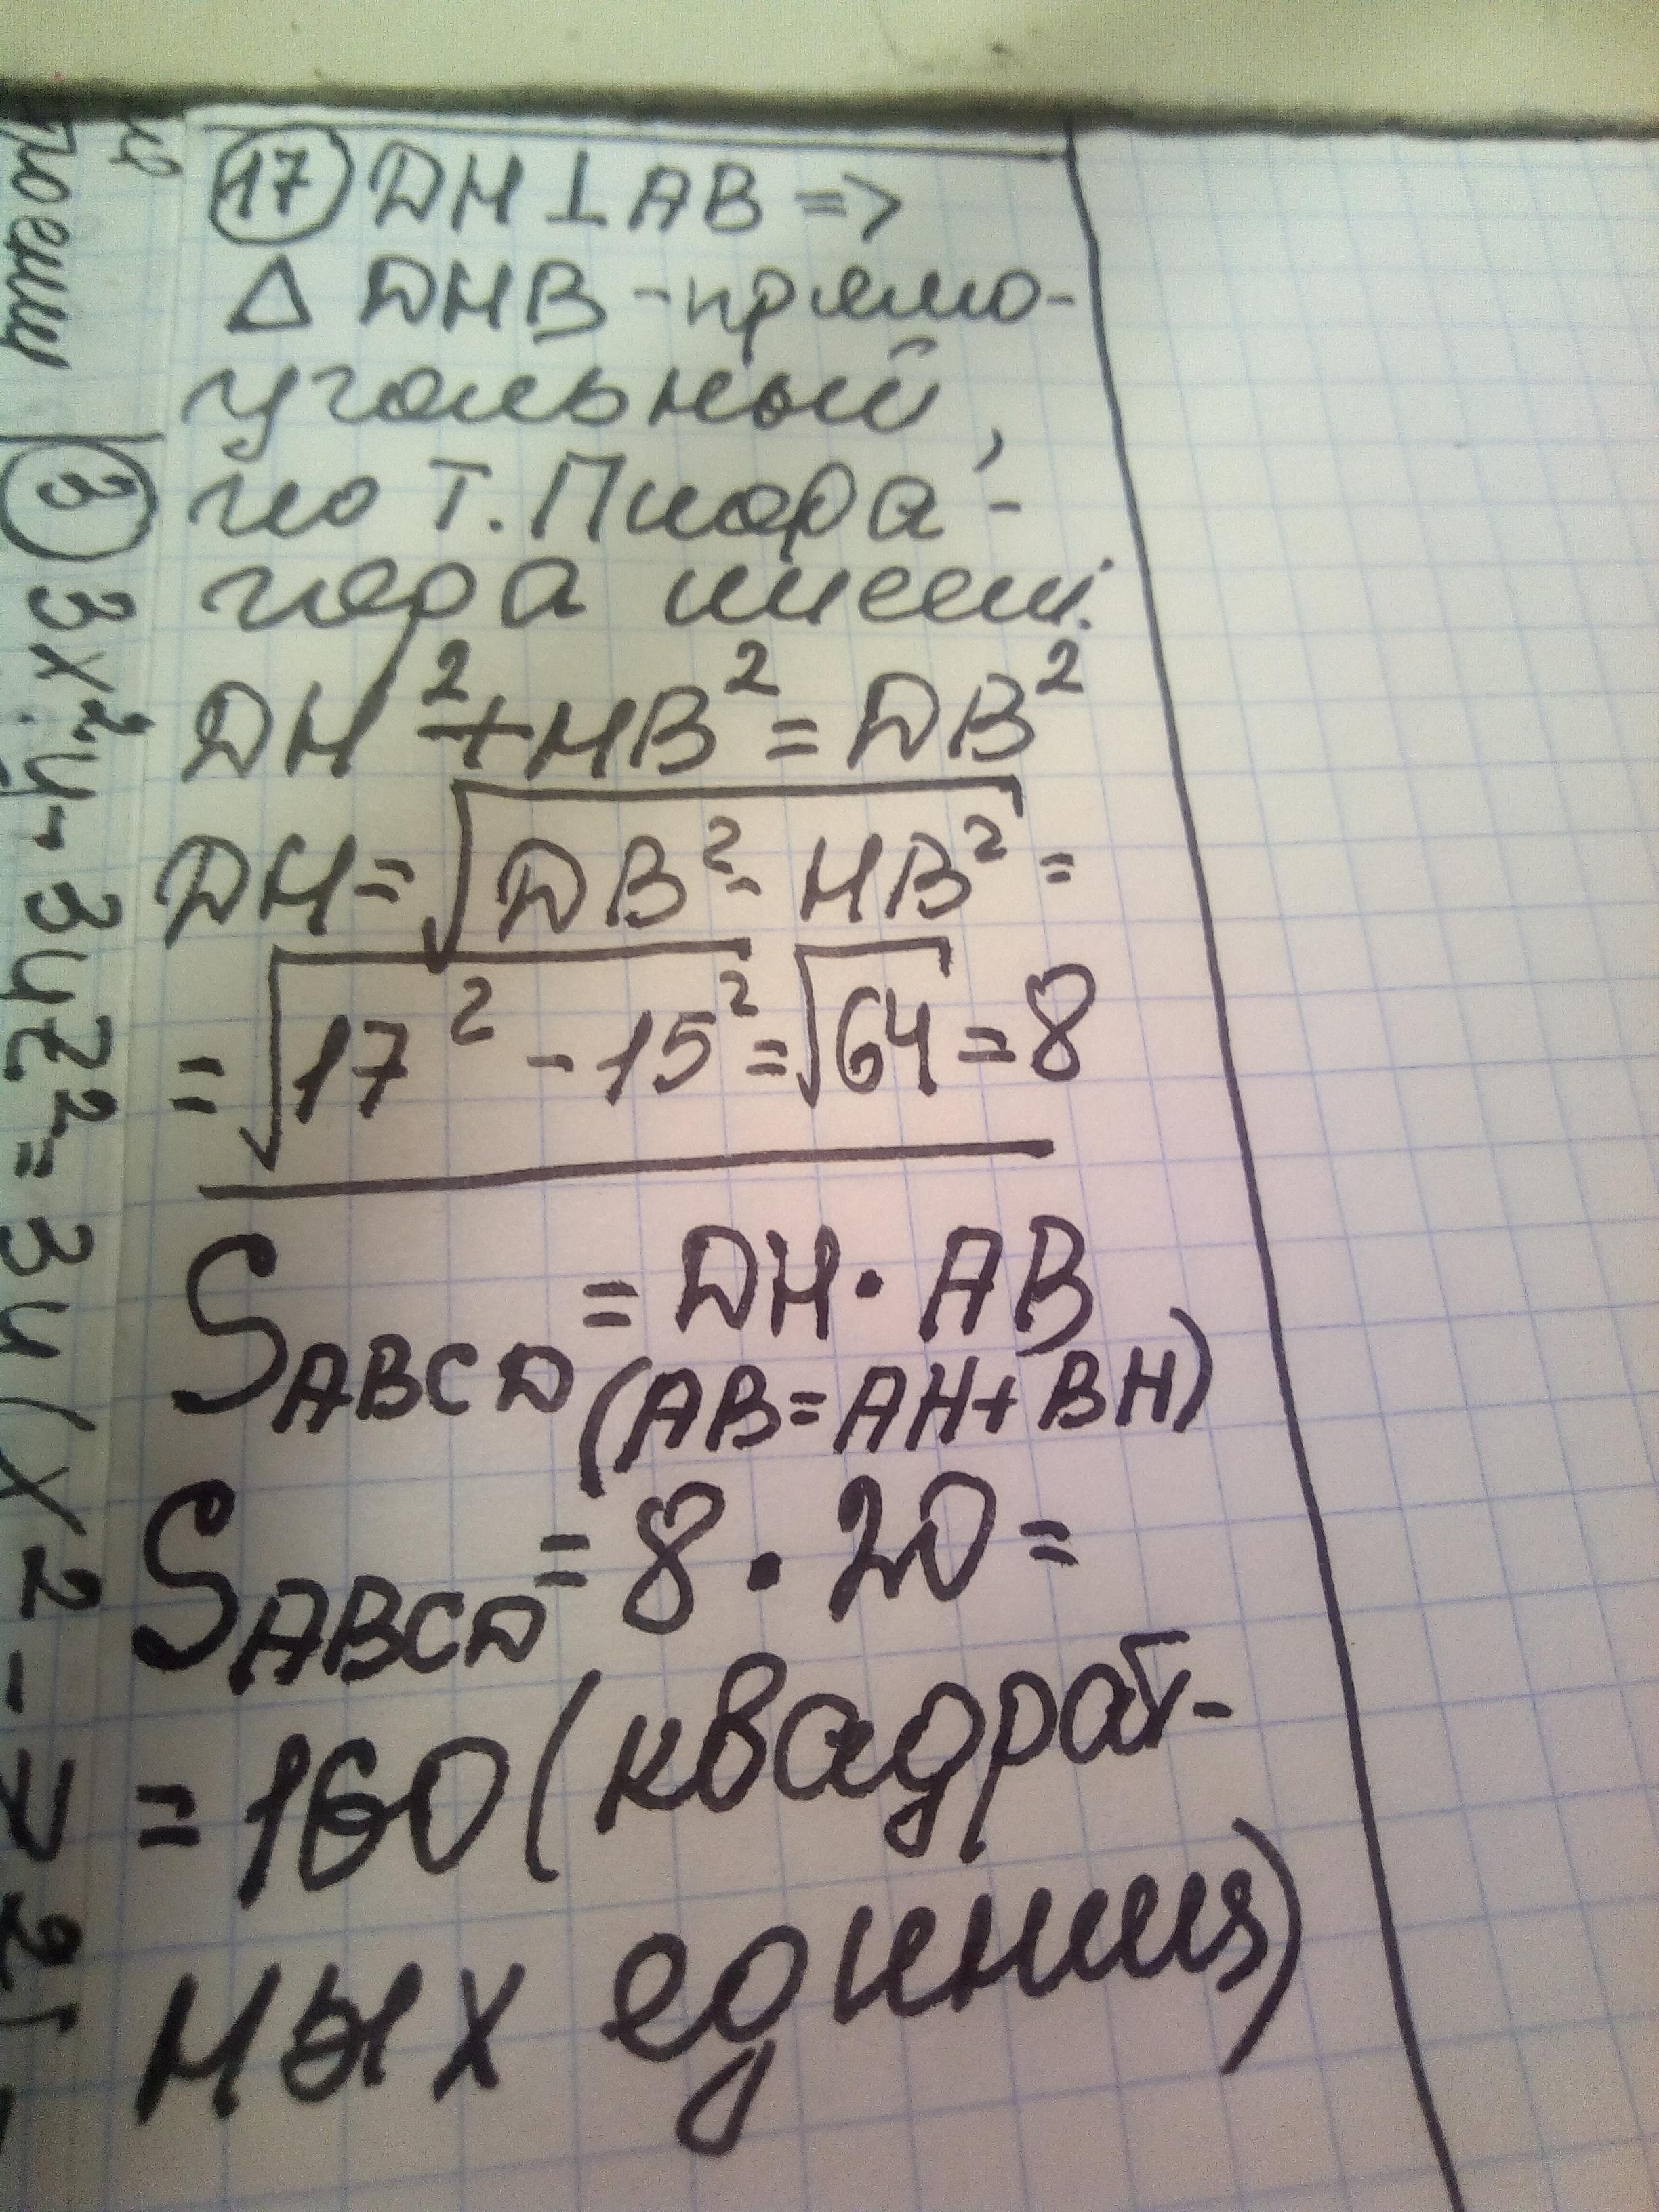 17 DH⊥AB =>
Δ DHB - прямо-
угольный,
по т. Пифа-
гора имеем:
DH²+HB²=DB²
DH=√DB²-HB² =
=√17²-15²=√64=8
S ABCD = DH·AB
(AB=AH+BH)
S ABCD = 8·20=
=160(квадрат-
ных единиц)
3 3x²y-3yz²=3y(x²-z²